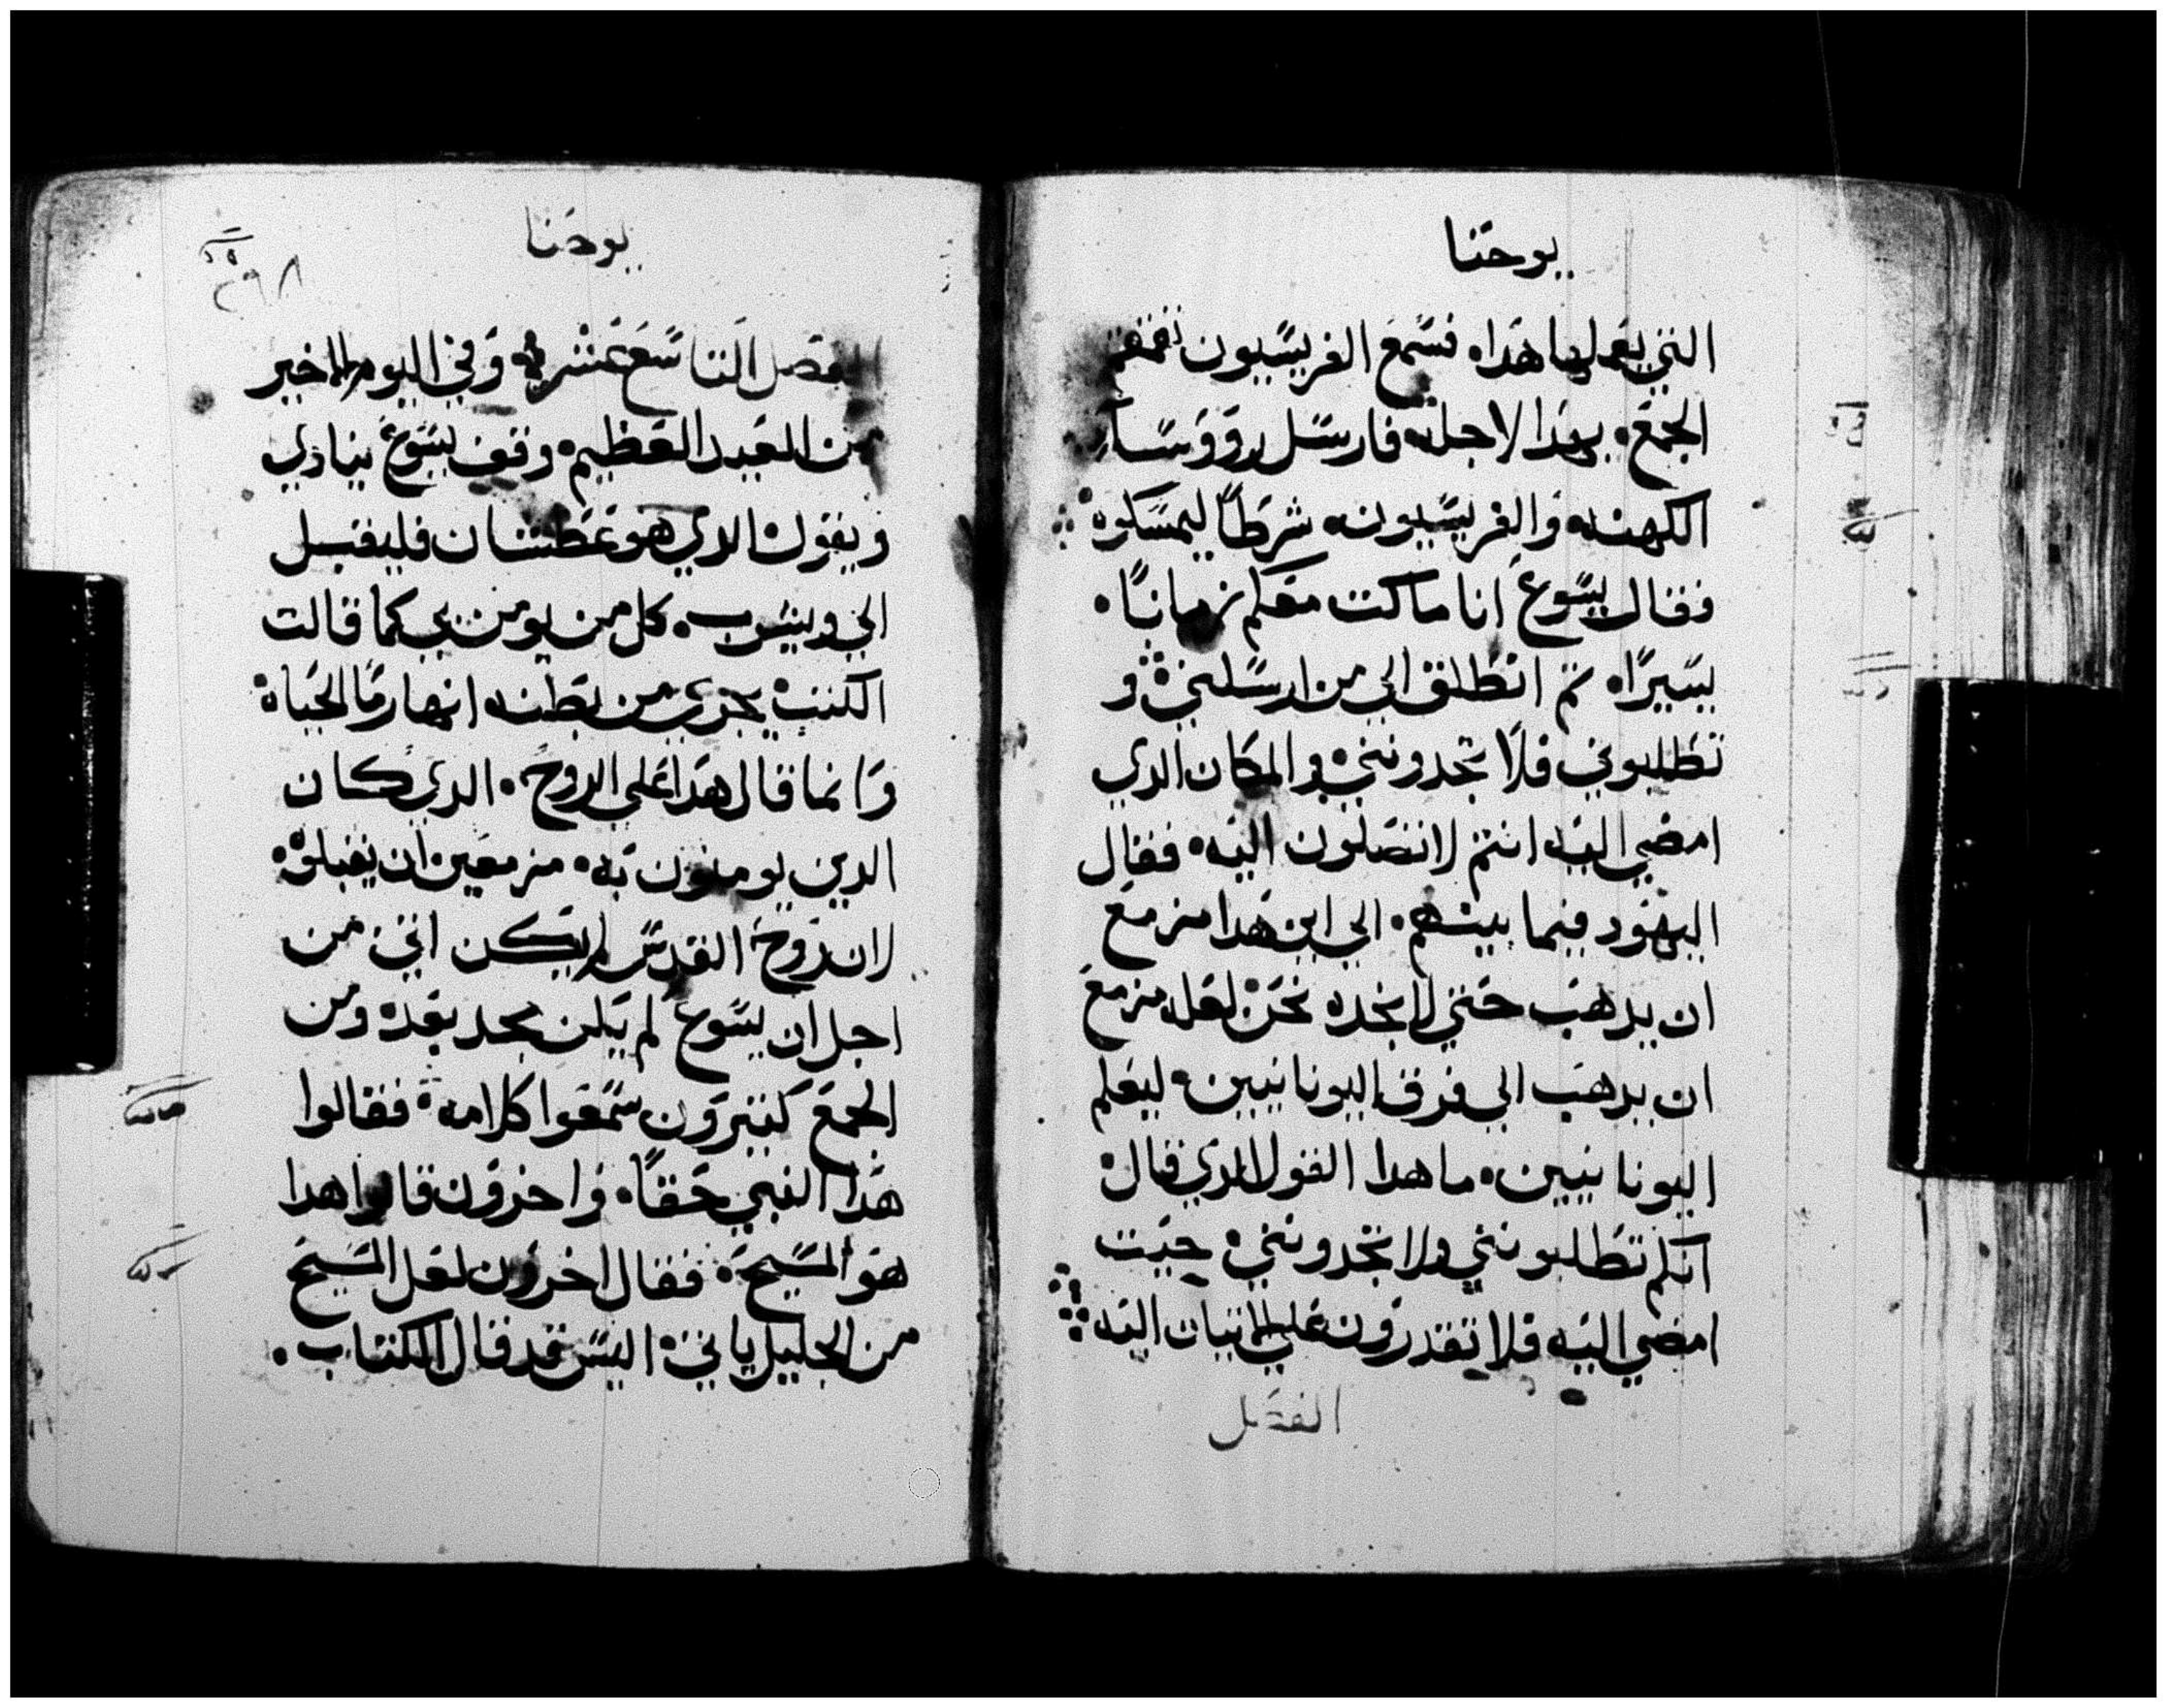 يوحنا
التي يعملها هدا، فسمع الفريسيون تقمقم
الجمع. بهدا لاجله فارسل رووسا
الكهنه والفريسيون، شرطًا ليمسكوه
فقال يسوع انا ماكت معكم زمانًا.
يسيرًا، تم انطلق الي من ارسلني و
تطلبوني فلا تجدونني والمكان الدي
امضي اليه انتم لا تصلون اليه. فقال
اليهود فيما بينهم. الي اين هدا مزمع
ان يدهب حتي لا نجده نحن لعل مزمع
ان يدهب الي فرق اليونانيين. ليعلم
اليونانيين. ما هدا القول الدي قال
انكم تطلبونني ولا تجدونني حيت
امضي اليه فلا تقدرون علي الاتيان اليه
الفصل
يوحنا
٢٩٨
الفصل التاسع عشر وفي اليوم الاخير
من العيد العظيم. وقف يسوع ينادي
ويقول الدي هو عطشان فليقبل
الي ويشرب. كل من يومن بي كما قالت
الكتب يجري من بطنه انهار ما الحياه
وانما قال هدا علي الروح. الدي كان
الدين يومنون به. مزمعين ان يقبلوه
لان روح القدس لم يكن اتي من
اجل ان يسوع لم يكن مجد بعد ومن
الجمع كتيرون سمعوا كلامه فقالوا
هدا النبي حقًا. واخرون قالوا هدا
هو المسيح. فقال اخرون لعل المسيح
من الجليل ياتي اليس قد قال الكتاب.